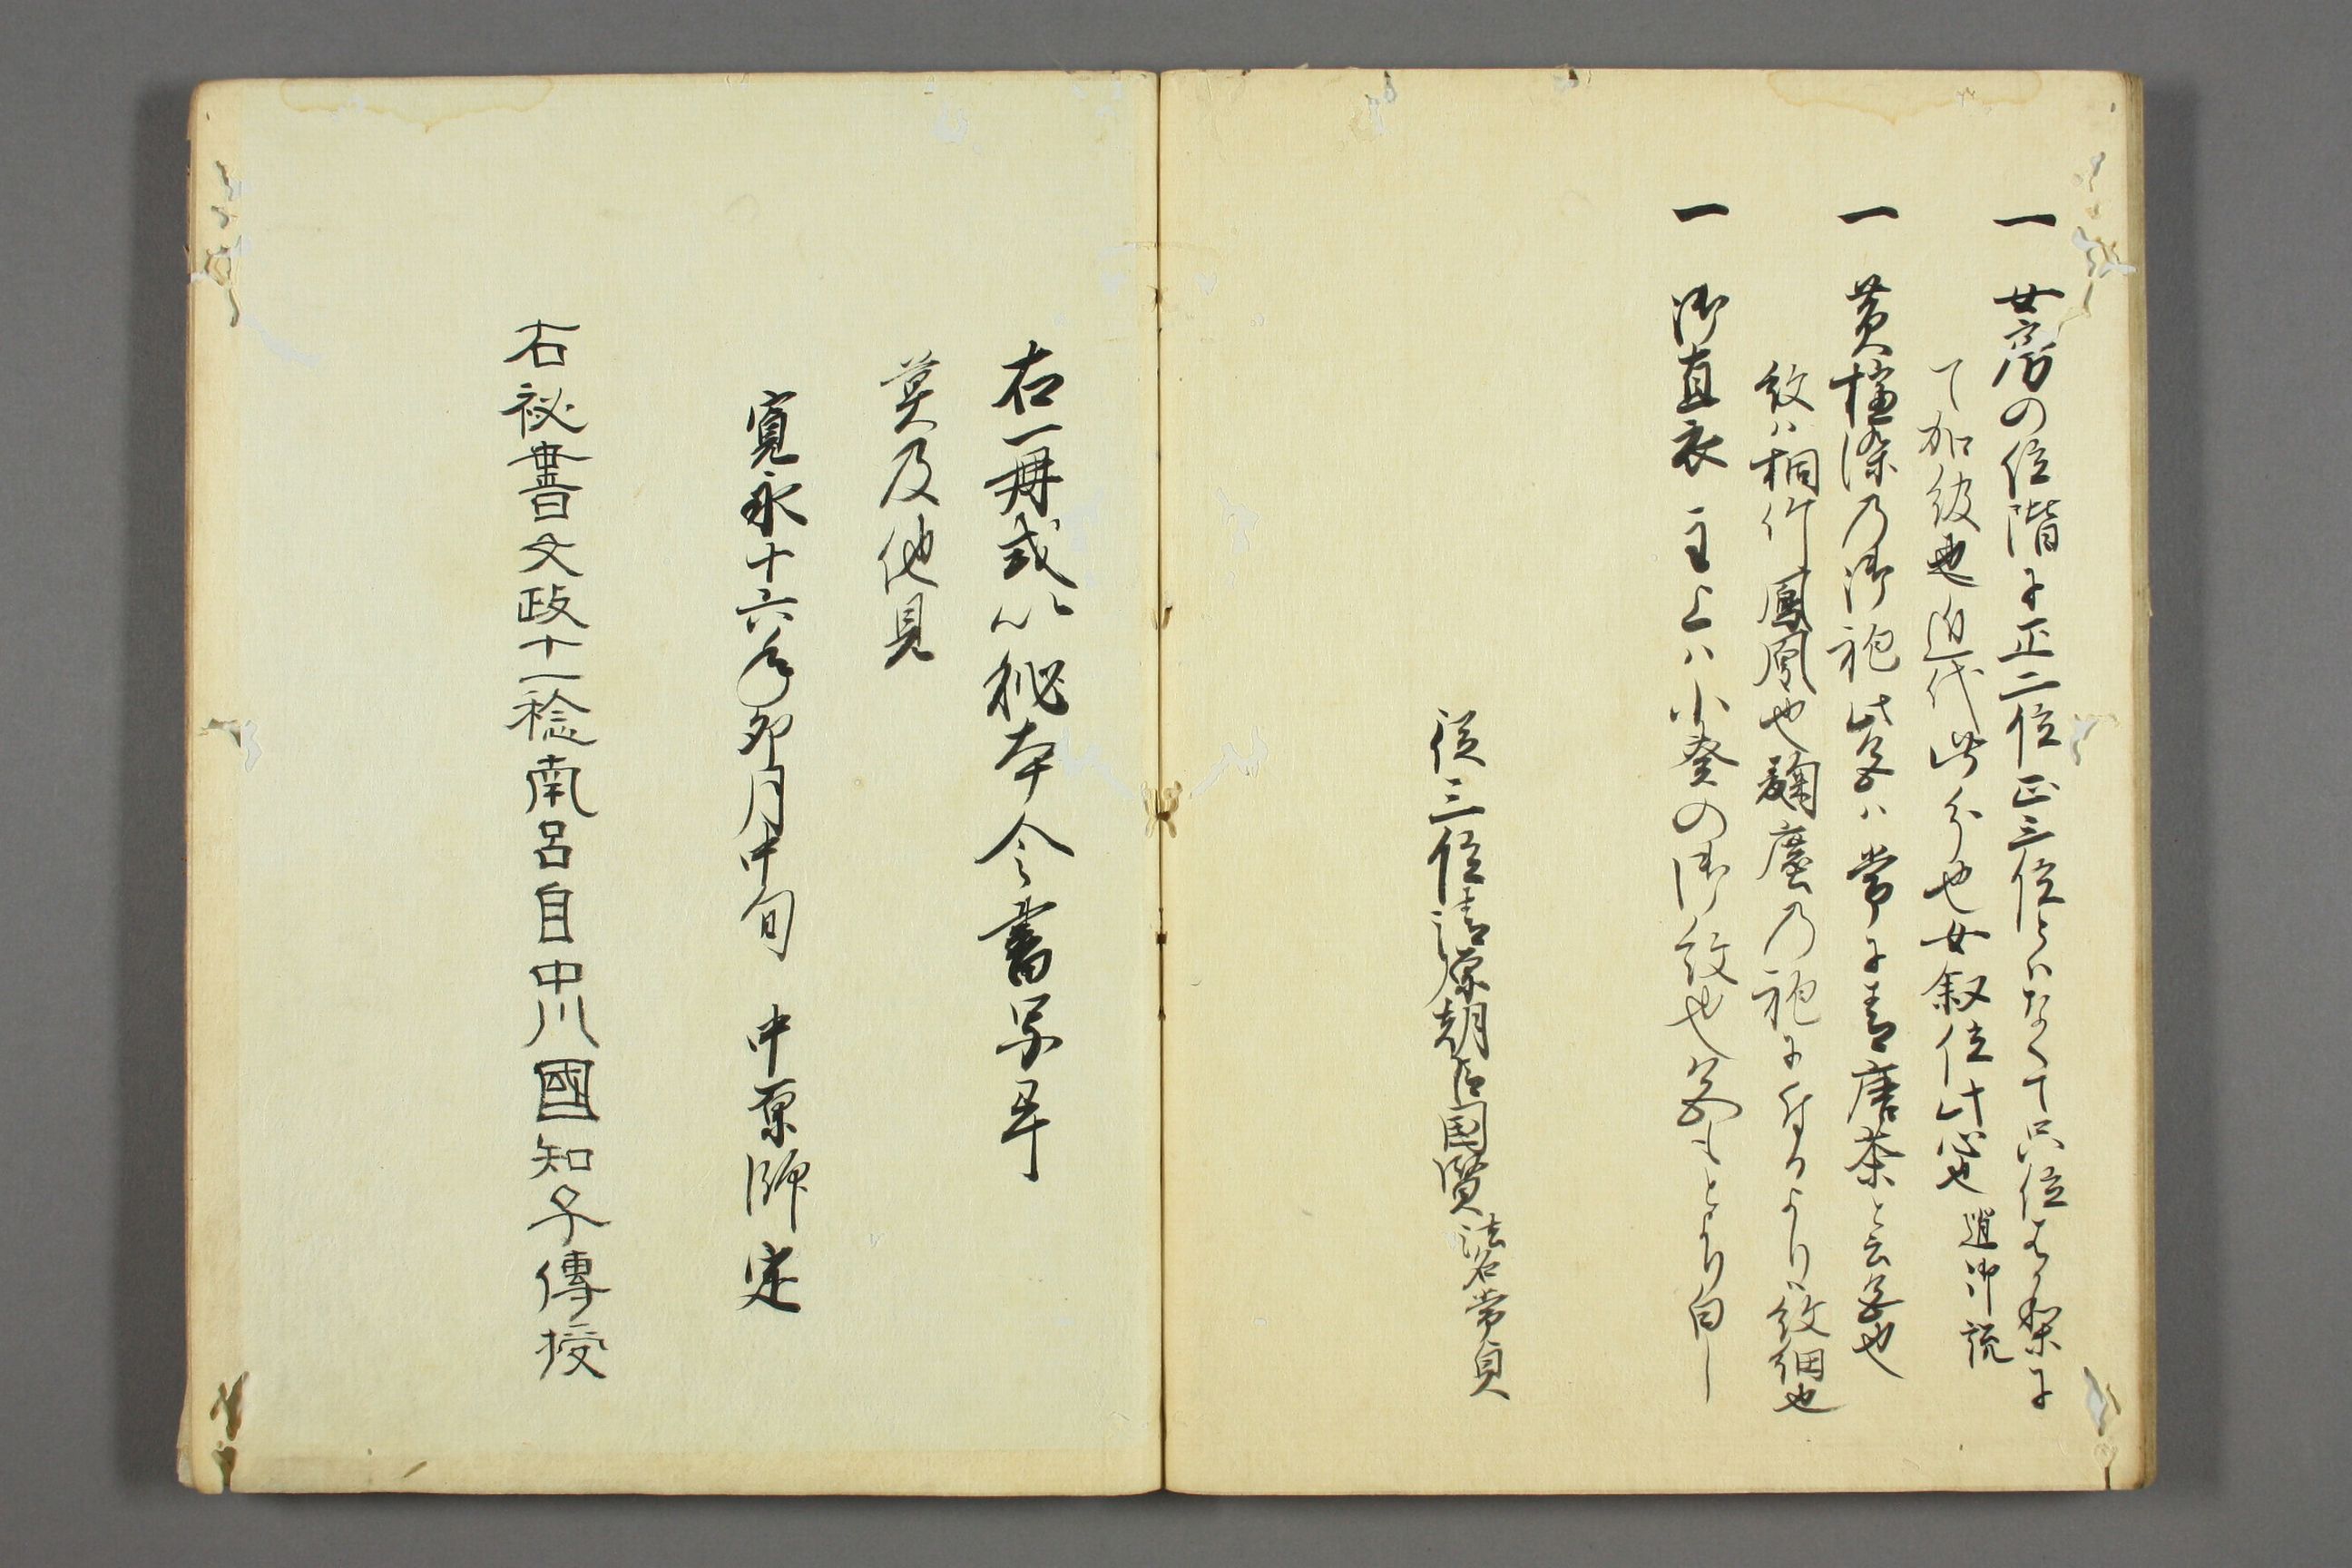 一 女房の位階に正二位正三位とはなくて只位を次に
て加級也近代此分也女叙位此心也 逍御説
一 黄櫨染乃御袍此名ハ常に青唐茶と云名也
紋ハ桐竹鳳凰也麹塵乃袍に付るよりハ紋細也
一 御直衣 主上ハ小葵の御紋也冬もとより白し
従三位清原朝臣国賢 法名常貞
右一冊或以秘本令書写畢
莫及他見
寛永十六年卯月中旬 中原師定
右祕書文政十一稔南呂自中川國知子傳授